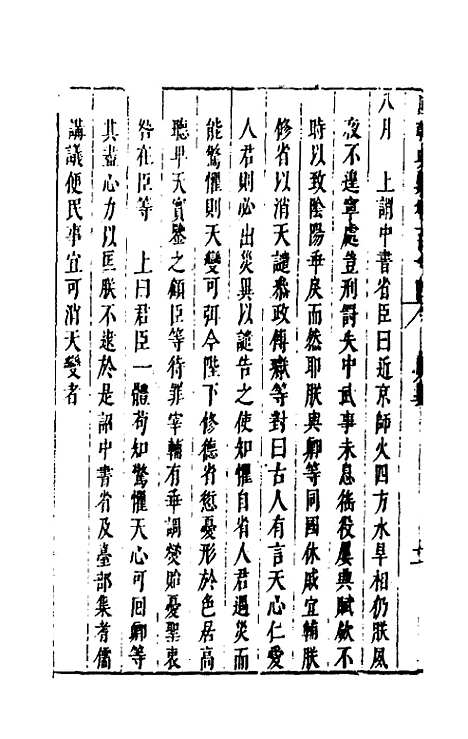 八月　上謂中書省臣曰近京師火四方水旱相仍朕夙
夜不遑寧處豈刑罰失中武事未息徭役屢興賦歛不
時以致陰陽乖戾而然耶朕與卿等同國休戚宜輔朕
修省以消天譴叅政傅瓛等對曰古人有言天心仁愛
人君則必出災異以譴告之使知懼自省人君遇災而
能驚懼則天變可弭今陛下修德省愆憂形於色居高
聽卑天實鑒之顧臣等待罪宰輔有乖調燮貽憂聖衷
咎在臣等　上曰君臣一體苟知驚懼天心可回卿等
其盡心力以匡朕不逮於是詔中書省及臺部集耆儒
講議便民事宜可消天變者